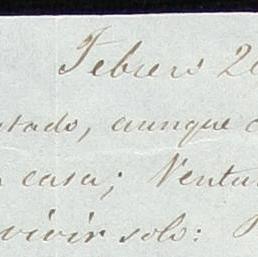 Febrero 20
stado, aunque
casa; Ventu
vivir solo: